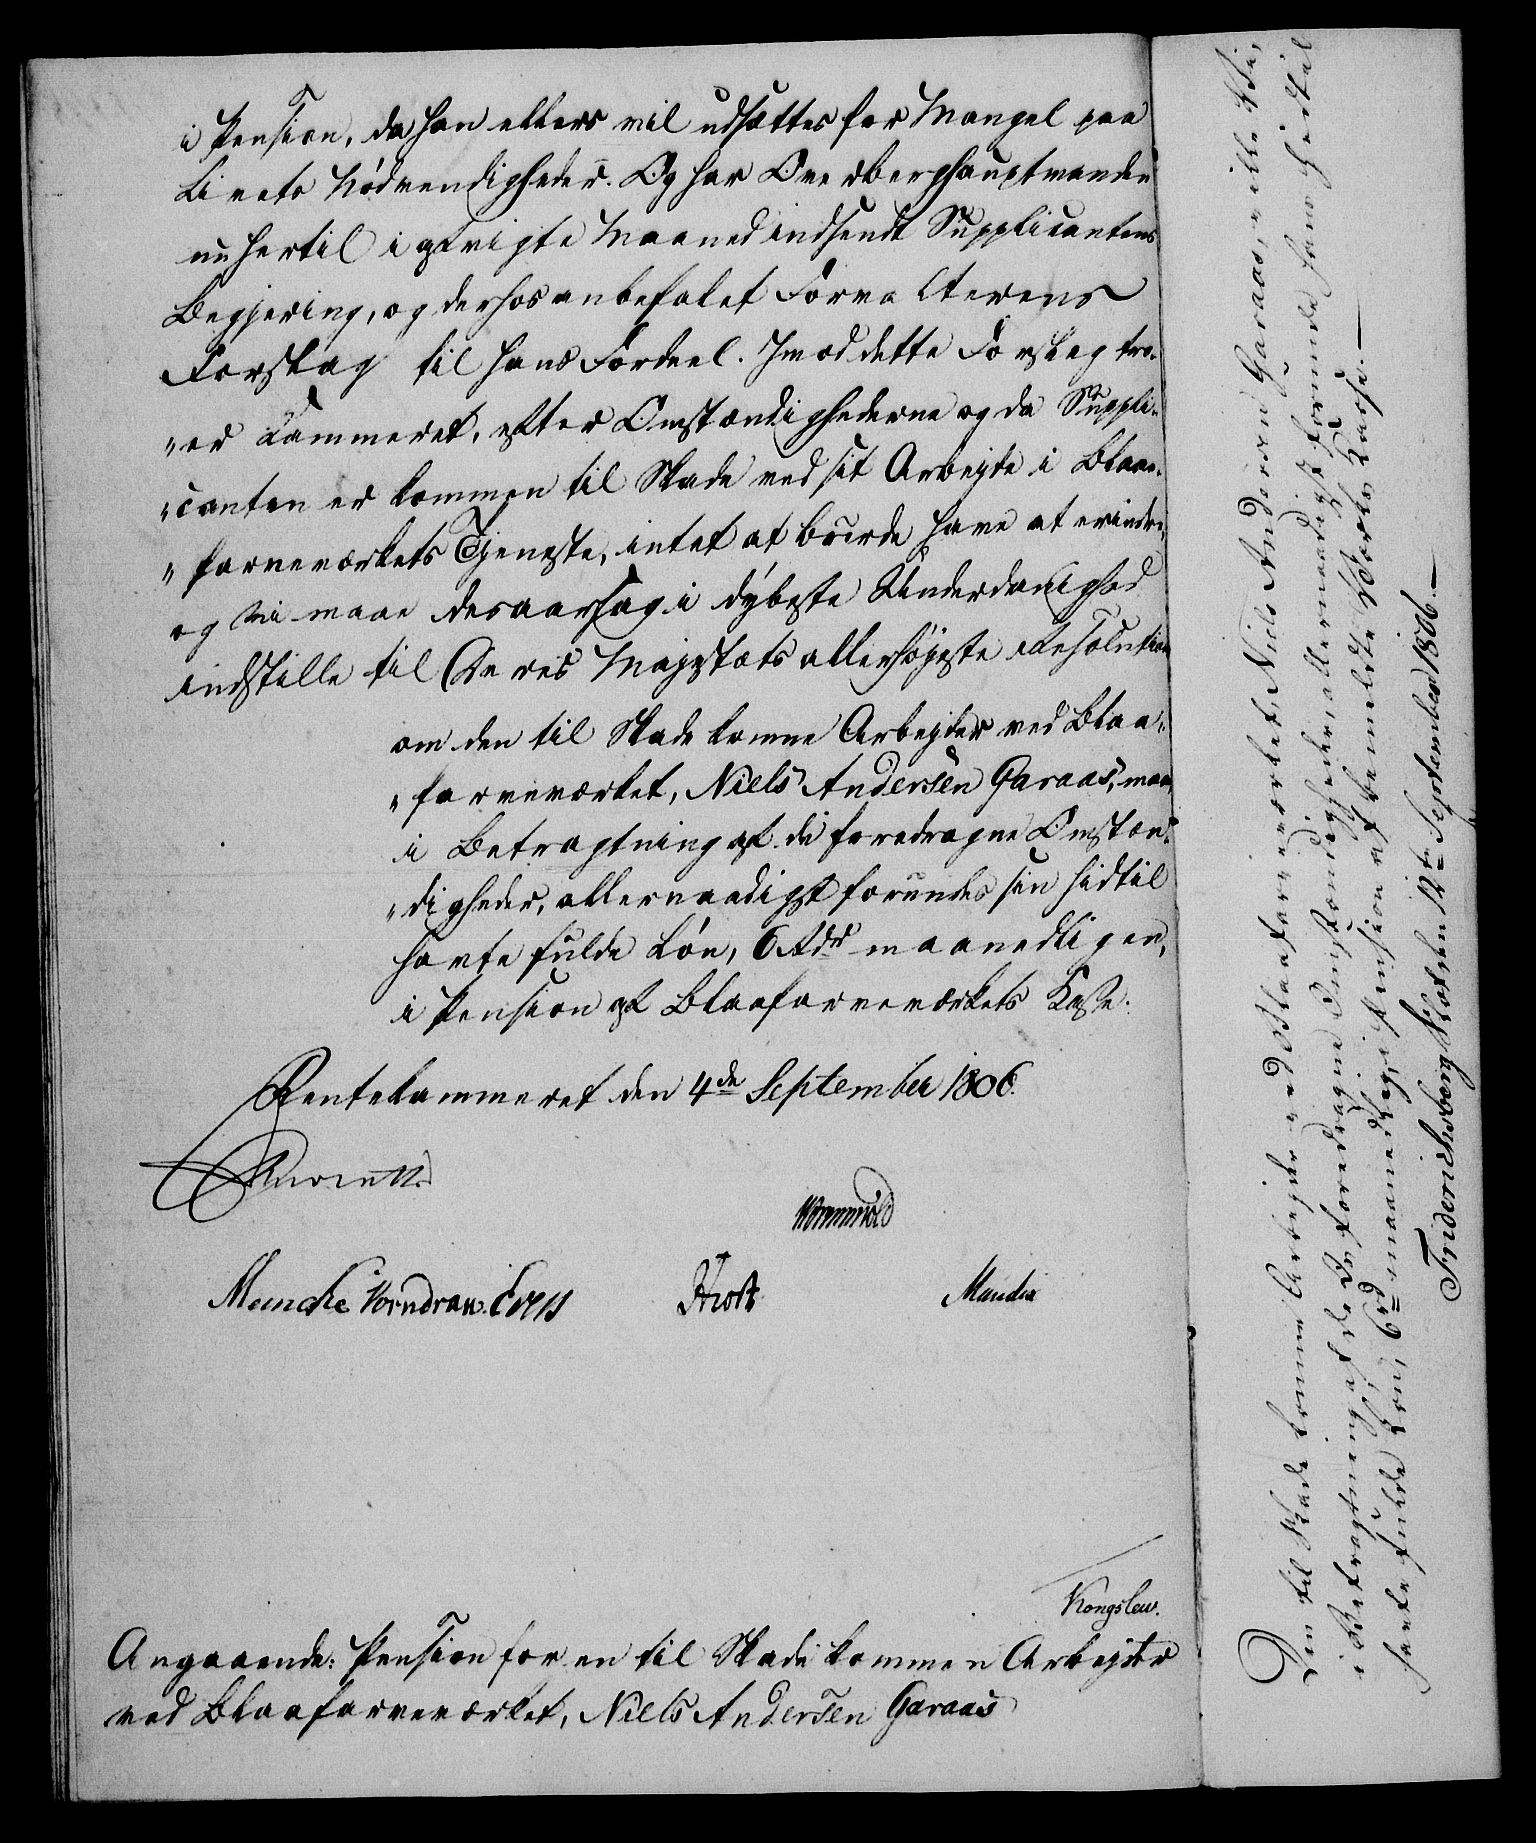 i Pension, da han ellers vil udsættes for Mangel paa
Livets Nødvendigheder. Og har Overberghauptmanden
nu hertil i afvigte Maaned indsendt Supplicantens
Begjering, og derhos anbefalet Forvalterens
Forslag til hans Fordeel. Imod dette Forslag tro-
"er Kammeret, efter Omstændighederne og da Suppli-
"canten er kommen til Skade ved sit Arbejde i Blaae-
"farveværkets Tjeneste, intet at burde have at erindre,
og vi maae desaarsag i dybeste Underdanighed
indstille til Deres Majestæts allerhøjeste Resolution
om den til Skade komne Arbejder ved Blaa-
"farveværket, Niels Andersen Garaas, maa
i Betragtning af de foredragne Omstæn-
"digheder, allernaadigst forundes sin hidtil
havte fulde Løn, 6 Rdr maanedligen,
i Pension af Blaafarveværkets Kasse.
Rentekammeret den 4de September 1806.
Wormskiold
Meincke Vorndran. Evers Holt Mandix
Kongslew.
Angaaende: Pension for en til Skade kommen Arbejder
ved Blaafarveværket, Niels Andersen Garaas
Den til Skade komne Arbejder ved Blaafarveværket, Niels Andersen Garaas, ville Vi,
i Betragtning af de foredragne Omstændigheder, allernaadigst forunde hans hidtil
havte fulde Løn, 6 rd maanedlig, i Pension af bemeldte Værks Kasse.—
Friderichsberg Slot den 12te September 1806.—